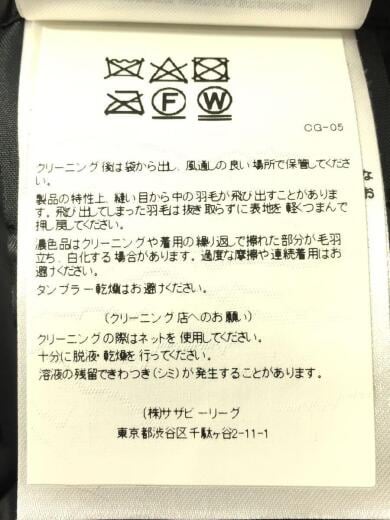 F W
CG-05
クリーニング後は袋から出し、風通しの良い場所で保管してくださ
い。
製品の特性上、縫い目から中の羽毛が飛び出すことがありま
す。飛び出してしまった羽毛は抜き取らずに表地を軽くつまんで
押し戻してください。
濃色品はクリーニングや着用の繰り返しで擦れた部分が毛羽
立ち、白化する場合があります。過度な摩擦や連続着用はお
避けください。
タンブラー乾燥はお避けください。
(クリーニング店へのお願い)
クリーニングの際はネットを使用してください。
十分に脱液・乾燥を行ってください。
溶液の残留できわつき(シミ)が発生することがあります。
(株)サザビーリーグ
東京都渋谷区千駄ヶ谷2-11-1
なお